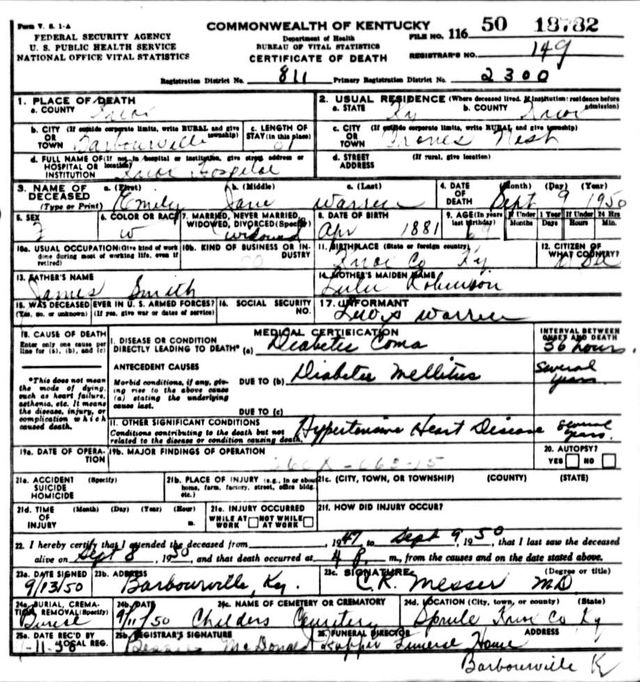 Form V. S. 1-A
FEDERAL SECURITY AGENCY
U. S. PUBLIC HEALTH SERVICE
NATIONAL OFFICE VITAL STATISTICS
COMMONWEALTH OF KENTUCKY
Department of Health
BUREAU OF VITAL STATISTICS
CERTIFICATE OF DEATH
FILE NO. 116 50 18782
REGISTRAR'S NO. 149
Registration District No. 811 Primary Registration District No. 2300
1. PLACE OF DEATH
a. COUNTY Knox
2. USUAL RESIDENCE (Where deceased lived. If institution: residence before admission).
a. STATE Ky b. COUNTY Knox
b. CITY (If outside corporate limits, write RURAL and give township)
OR TOWN Barbourville
c. LENGTH OF STAY (in this place)
c. CITY (If outside corporate limits, write RURAL and give township)
OR TOWN Nest
d. FULL NAME OF (If not in hospital or institution, give street address or location)
HOSPITAL OR INSTITUTION Knox Hospital
d. STREET ADDRESS (If rural, give location)
3. NAME OF DECEASED (Type or Print)
a. (First) Emily b. (Middle) Jane c. (Last) Warren
4. DATE OF DEATH (Month) (Day) (Year) Sept 9 1950
5. SEX F
6. COLOR OR RACE W
7. MARRIED, NEVER MARRIED, WIDOWED, DIVORCED (Specify) Widowed
8. DATE OF BIRTH Apr 1881
9. AGE (In years last birthday) 69 If Under 1 Year Months Days If Under 24 Hrs Hours Min.
10a. USUAL OCCUPATION (Give kind of work done during most of working life, even if retired)
10b. KIND OF BUSINESS OR INDUSTRY
11. BIRTHPLACE (State or foreign country) Knox Co Ky
12. CITIZEN OF WHAT COUNTRY?
13. FATHER'S NAME James Smith
14. MOTHER'S MAIDEN NAME Lulu Robinson
15. WAS DECEASED EVER IN U. S. ARMED FORCES? (Yes, no, or unknown) (If yes, give war or dates of service)
16. SOCIAL SECURITY NO.
17. INFORMANT Lewis Warren
18. CAUSE OF DEATH
Enter only one cause per line for (a), (b), and (c)
MEDICAL CERTIFICATION
INTERVAL BETWEEN ONSET AND DEATH
I. DISEASE OR CONDITION DIRECTLY LEADING TO DEATH* (a) Diabetic Coma 36 hours
*This does not mean the mode of dying, such as heart failure, asthenia, etc. It means the disease, injury, or complication which caused death.
ANTECEDENT CAUSES
Morbid conditions, if any, giving rise to the above cause (a) stating the underlying cause last.
DUE TO (b) Diabetes Mellitus Several years
DUE TO (c)
II. OTHER SIGNIFICANT CONDITIONS
Conditions contributing to the death but not related to the disease or condition causing death.
Hypertensive Heart Disease Several years.
19a. DATE OF OPERATION
19b. MAJOR FINDINGS OF OPERATION
20. AUTOPSY? YES NO
21a. ACCIDENT SUICIDE HOMICIDE (Specify)
21b. PLACE OF INJURY (e.g., in or about home, farm, factory, street, office bldg. etc.)
21c. (CITY, TOWN, OR TOWNSHIP) (COUNTY) (STATE)
21d. TIME OF INJURY (Month) (Day) (Year) (Hour) m.
21e. INJURY OCCURRED WHILE AT WORK NOT WHILE AT WORK
21f. HOW DID INJURY OCCUR?
22. I hereby certify that I attended the deceased from 1947 to Sept 9, 1950, that I last saw the deceased
alive on Sept 8, 1950, and that death occurred at 4 P m., from the causes and on the date stated above.
23a. DATE SIGNED 9/13/50
23b. ADDRESS Barbourville, Ky.
23c. SIGNATURE (Degree or title) C. R. Messer MD
24a. BURIAL, CREMATION, REMOVAL? (Specify) Burial
24b. DATE 9/11/50
24c. NAME OF CEMETERY OR CREMATORY Childers Cemetery
24d. LOCATION (City, town, or county) (State) Sprule Knox Co Ky
25a. DATE REC'D BY LOCAL REG.
25b. REGISTRAR'S SIGNATURE McDonald
26. FUNERAL DIRECTOR ADDRESS Hopper Funeral Home
Barbourville Ky